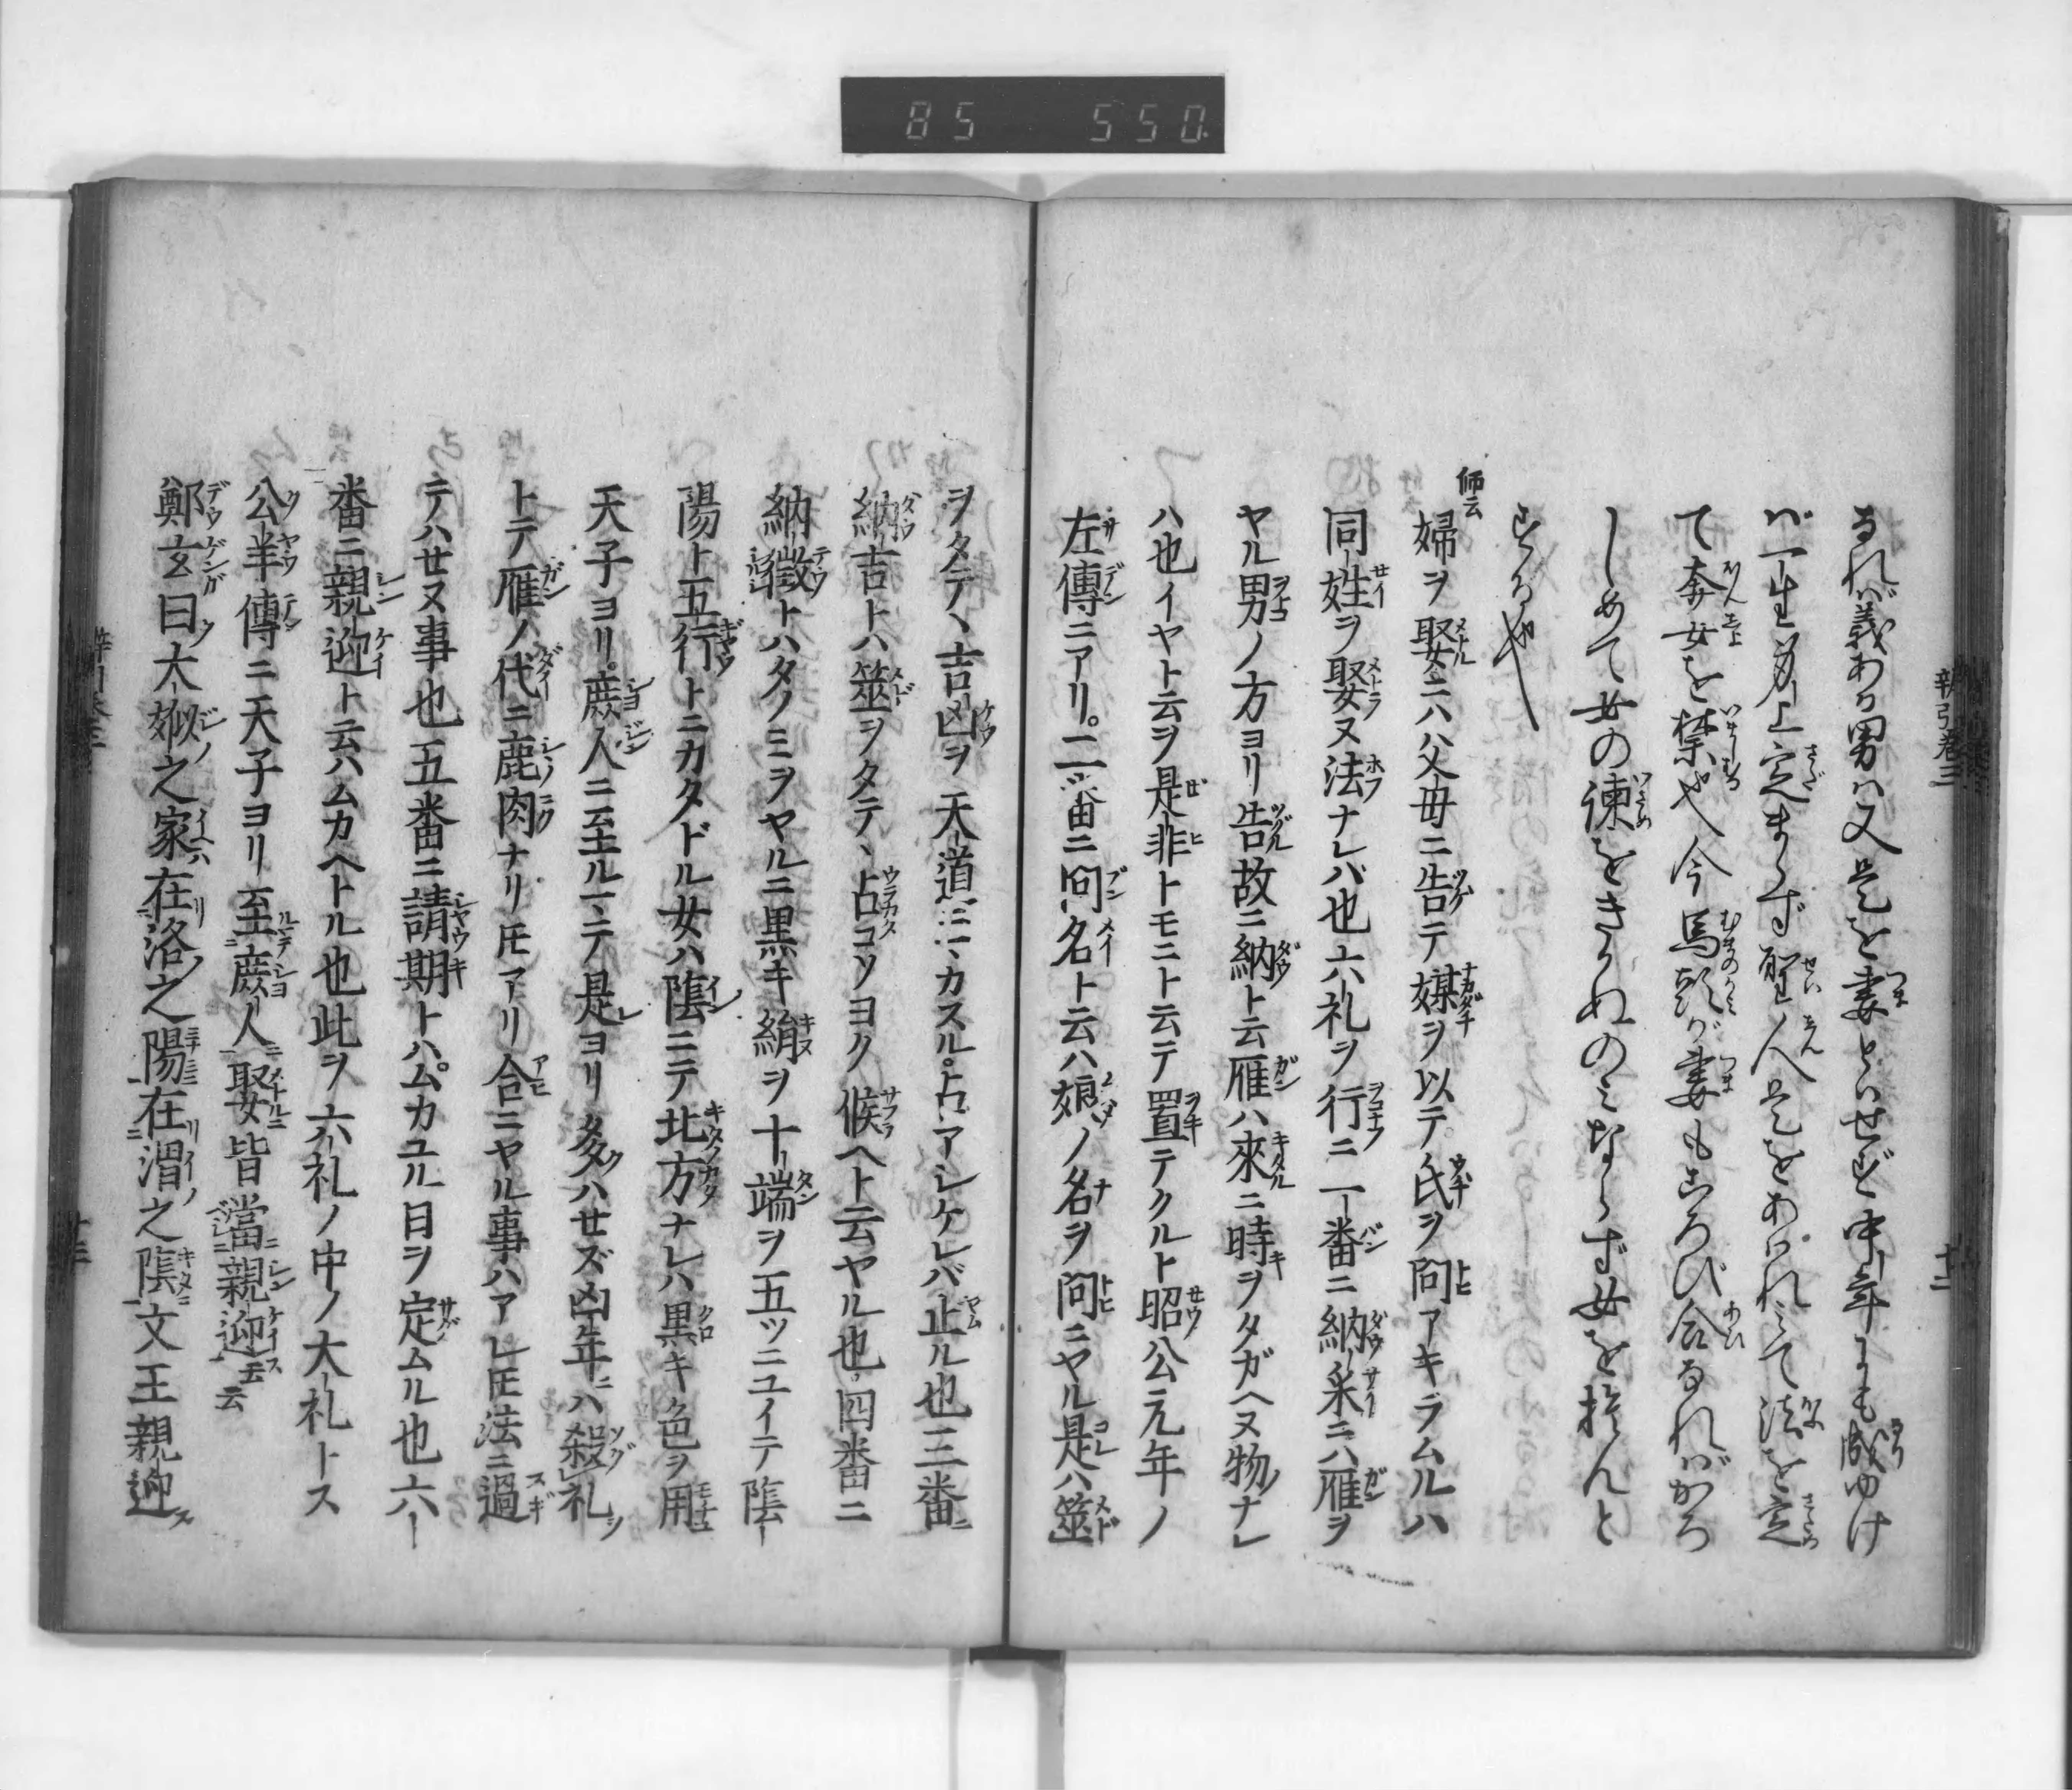 85 550
るれば義ある男は又是を妻といせど中年にも成ゆけ
ば一生身上定まらず聖人是をあはれみて法を定
て奔女を禁也今馬頭が妻もまろび合なればがろ
しめて女の諫をきかぬのみならず女を捨んと
するや
師云
婦ヲ娶ニハ父母ニ告テ媒ヲ以テ氏ヲ問アキラムルハ
同姓ヲ娶ヌ法ナレバ也六礼ヲ行ニ一番ニ納采ニハ雁ヲ
ヤル男ノ方ヨリ告故ニ納ト云雁ハ來ニ時ヲタガヘヌ物ナレ
ハ也イヤト云ヲ是非トモニト云テ置テクルト昭公元年ノ
左傳ニアリ。二番ニ問名ト云ハ娘ノ名ヲ問ニヤル是ハ筮
ヲタテヽ吉凶ヲ天道ニマカスル。占アシケレバ止ル也三番ニ
納吉トハ筮ヲタテヽ占コソヨク候ヘト云ヤル也四番ニ
納徴トハタノミヲヤルニ黒キ絹ヲ十端ヲ五ツニユイテ陰
陽ト五行トニカタドル女ハ陰ニテ北方ナレハ黒キ色ヲ用
天子ヨリ。庶人ニ至ルマテ是ヨリ多ハせズ凶年ニハ殺礼
トテ雁ノ代ニ鹿肉ナリ𪜈アリ合ニヤル事ハアレ𪜈法ニ過
テハせヌ事也五番ニ請期トハムカユル日ヲ定ムル也六
番ニ親迎ト云ハムカヘトル也此ヲ六礼ノ中ノ大礼トス
公羊傳ニ天子ヨリ至庶人娶皆當親迎云云
鄭玄曰大姒之家在洛之陽在渭之陰文王親迎
辨引巻三
十二
十三